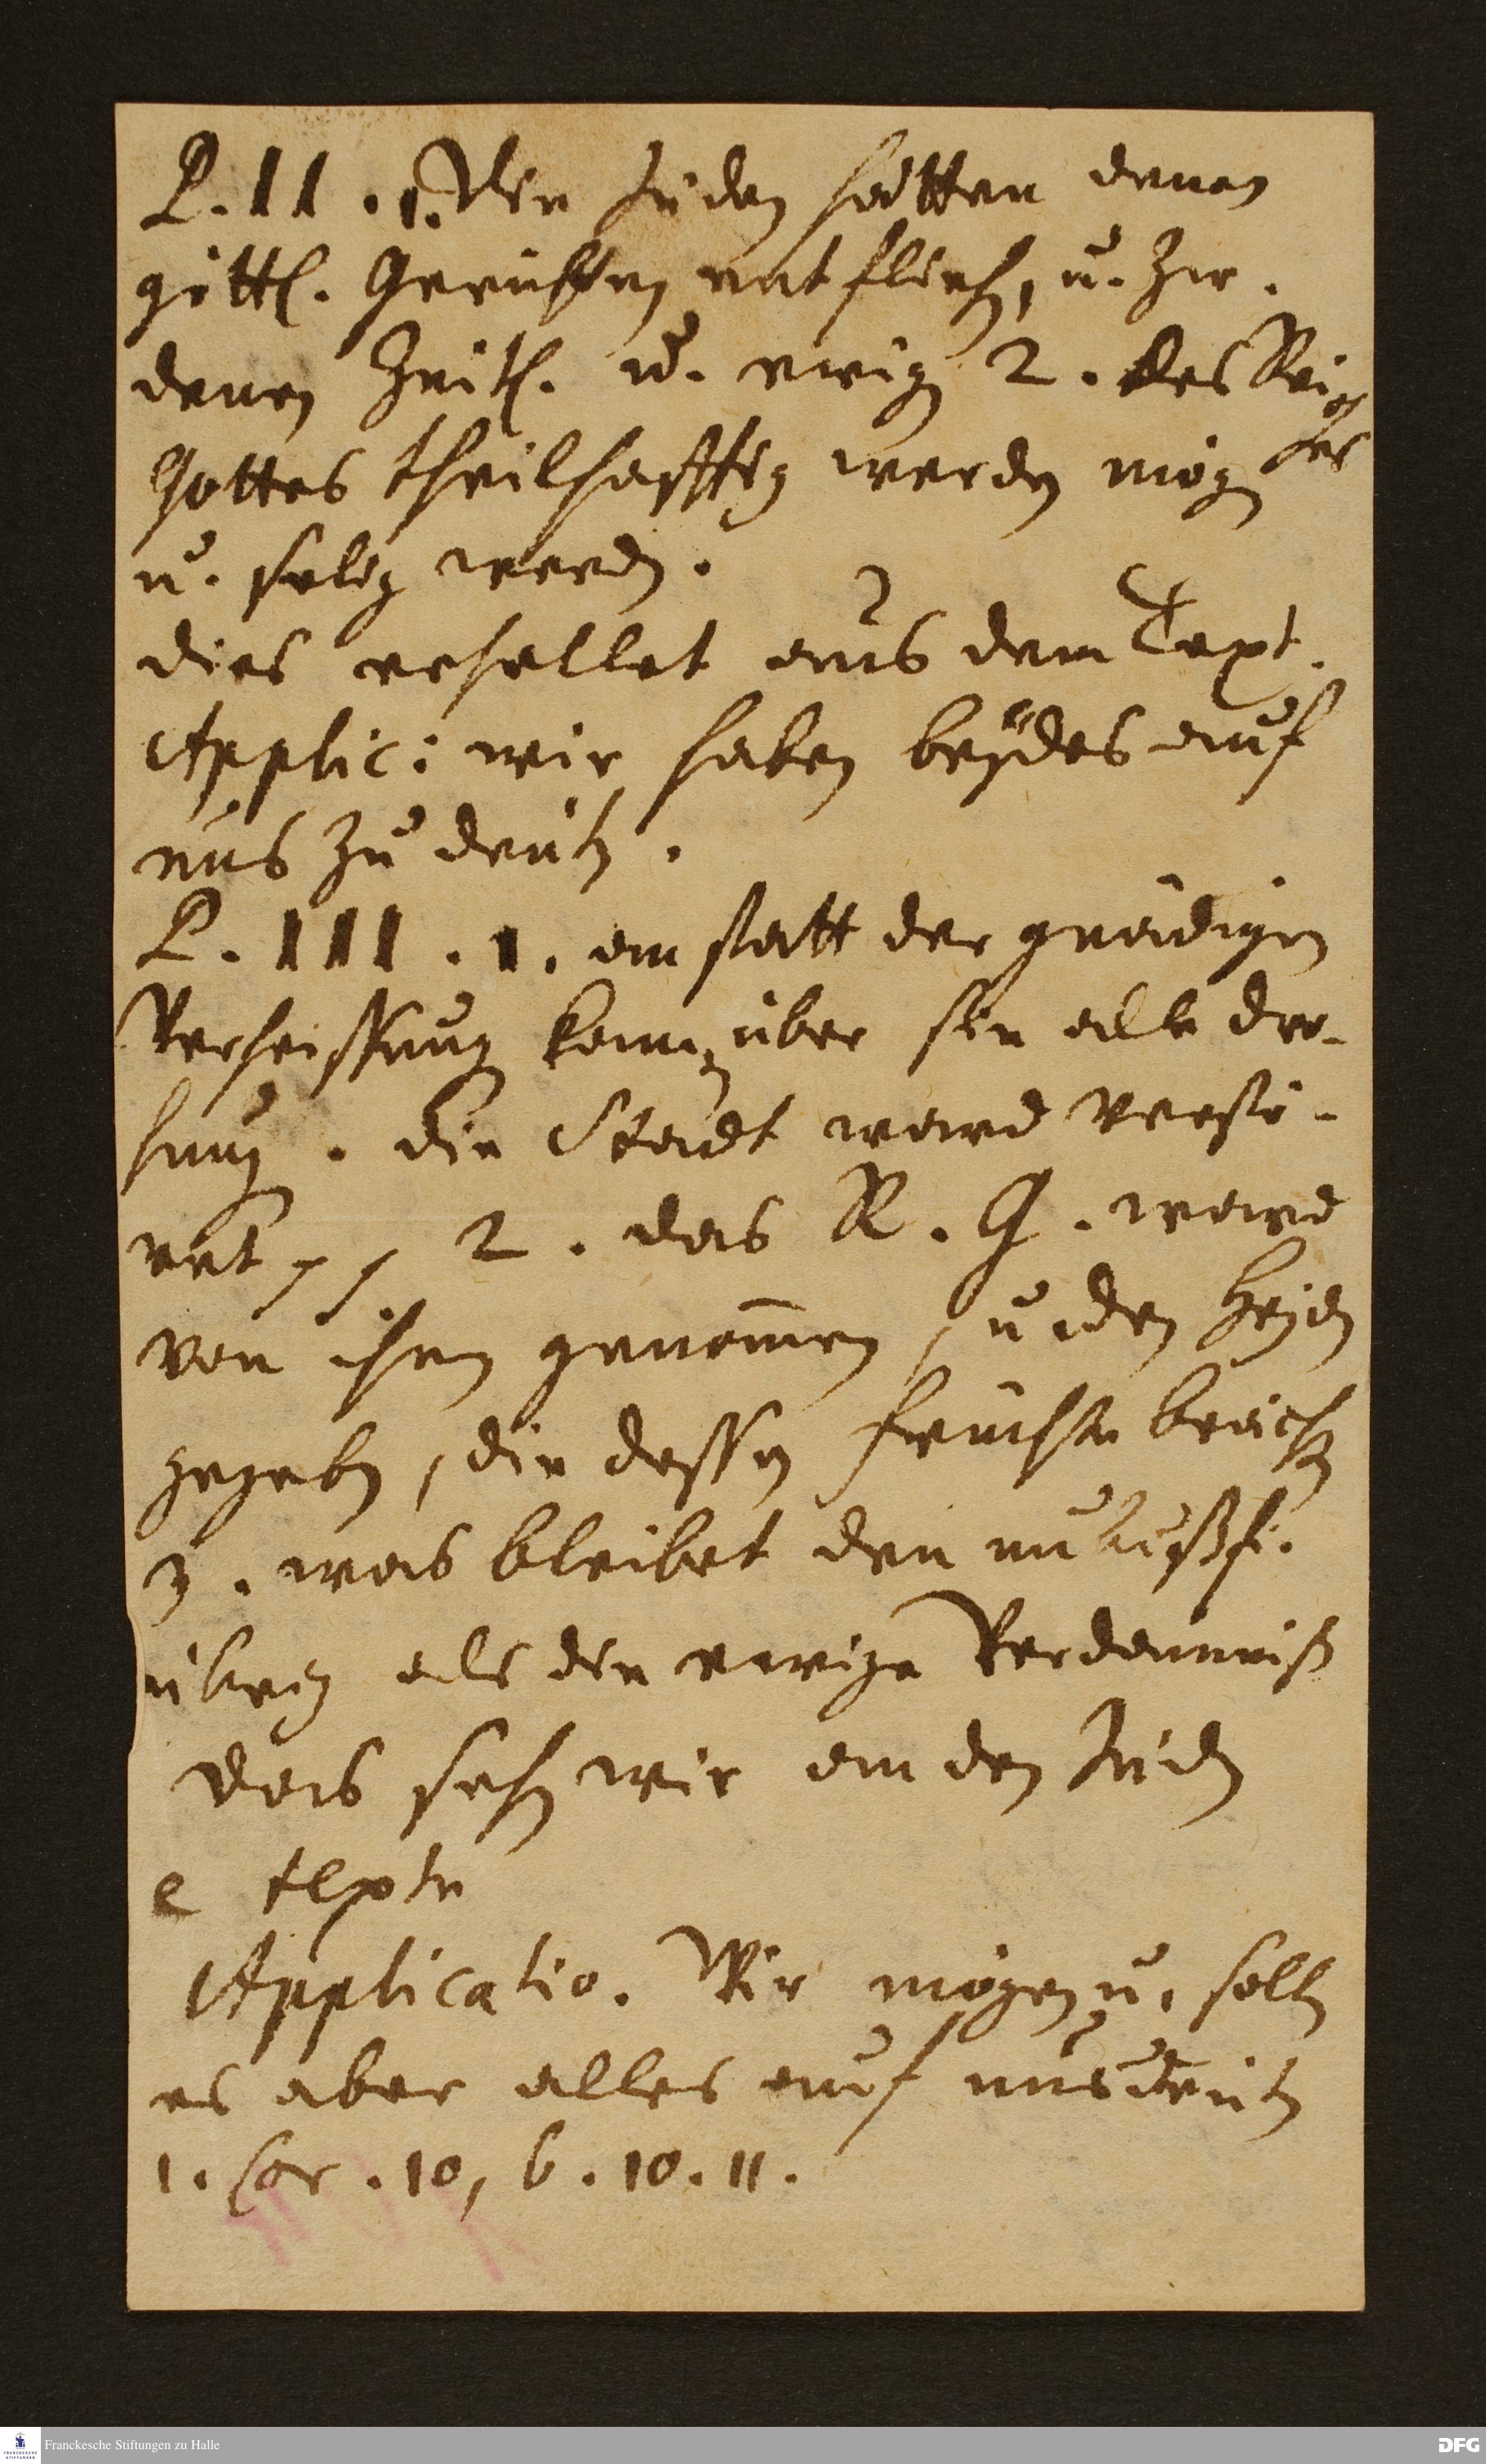 P. II. 1. Die Juden hätten denen
göttl. Gerichten entfliehen, u. zw.
denen Zeitl. u. ewigen 2. des Reiches
Gottes theilhafftig werden mögen
u. selig werden.
dies erhellet aus dem Text.
Applic: wir haben beÿdes auf
uns zu deuten.
P. III. 1. an statt der gnädigen
Verheissung kam über sie alle Dro-
hung. die Stadt ward verstö-
ret pp 2. das R. G. ward
von ihnen genomen, u den Heyden
gegeben, die dessen Früchte brächten
3. was bleibet den unbußf.
übrig als die ewige Verdamniß
das sehen wir an den Juden
e texte
Applicatio. Wir mögen u. sollen
es aber alles auf uns deuten
1. Cor. 10, 6. 10. 11.
Franckesche Stiftungen zu Halle
DFG